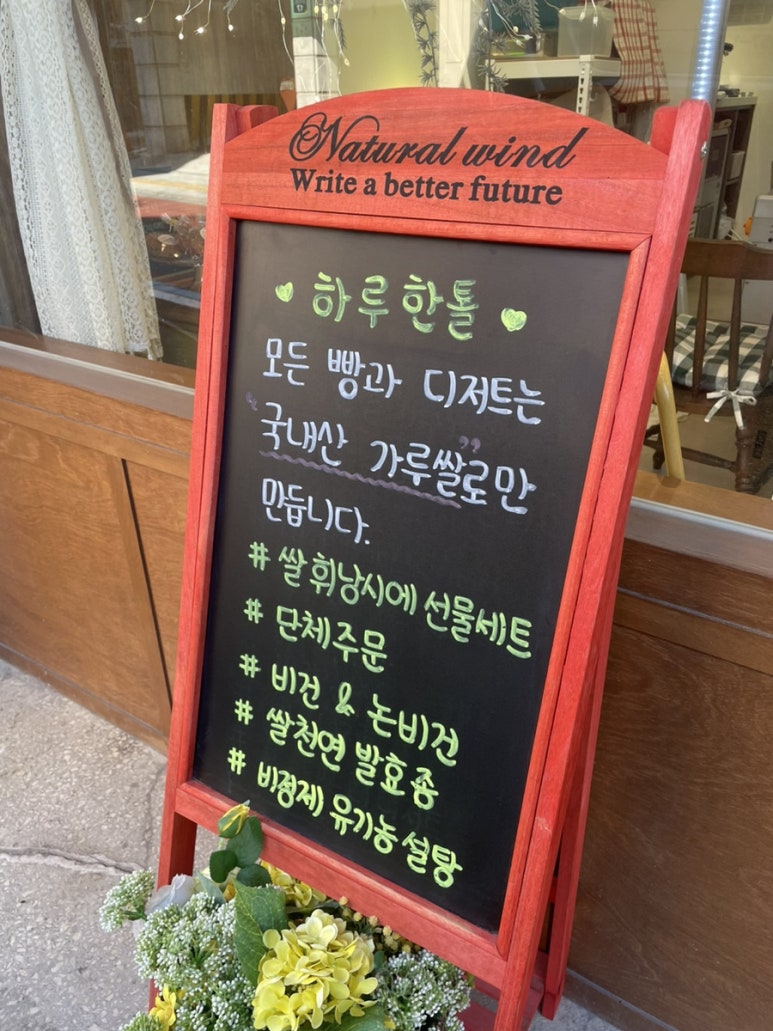 Natural wind
Write a better future
하루 한톨
모든 빵과 디저트는
"국내산 가루쌀"로만
만듭니다.
# 쌀 휘낭시에 선물세트
# 단체주문
# 비건 & 논비건
# 쌀천연 발효종
# 비정제 유기농 설탕